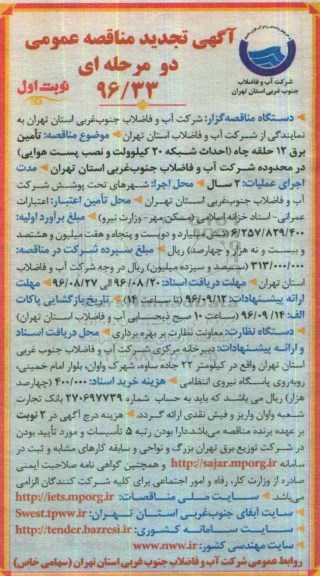 آگهی تجدید مناقصه عمومی
دو مرحله ای
۹۶/۳۳
نوبت اول
شرکت آب و فاضلاب
جنوب غربی استان تهران
دستگاه مناقصه‌گزار: شرکت آب و فاضلاب جنوب‌غربی استان تهران به
نمایندگی از شرکت آب و فاضلاب استان تهران ◄ موضوع مناقصه: تأمین
برق ۱۲ حلقه چاه (احداث شبکه ۲۰ کیلوولت و نصب پست هوایی)
در محدوده شرکت آب و فاضلاب جنوب‌غربی استان تهران ◄ مدت
اجرای عملیات: ۲ سال ◄ محل اجرا: شهرهای تحت پوشش شرکت
آب و فاضلاب جنوب‌غربی استان تهران ◄ محل تأمین اعتبار: اعتبارات
عمرانی- اسناد خزانه اسلامی (مسکن مهر- وزارت نیرو) ◄ مبلغ برآورد اولیه:
۶/۲۵۷/۸۲۹/۴۰۰ (شش میلیارد و دویست و پنجاه و هفت میلیون و هشتصد
و بیست و نه هزار و چهارصد) ریال ◄ مبلغ سپرده شرکت در مناقصه:
۳۱۳/۰۰۰/۰۰۰ (سیصد و سیزده میلیون) ریال در وجه شرکت آب و فاضلاب
استان تهران ◄ مهلت دریافت اسناد: ۹۶/۰۸/۲۰ الی ۹۶/۰۸/۲۷ ◄ مهلت
ارائه پیشنهادات: ۹۶/۰۹/۱۲ (تا ساعت ۱۴) ◄ تاریخ بازگشایی پاکات
الف: ۹۶/۰۹/۱۴ (ساعت ۱۰ صبح ذیحسابی آب و فاضلاب استان تهران)
◄ دستگاه نظارت: معاونت نظارت بر بهره برداری ◄ محل دریافت اسناد
و ارائه پیشنهادات: دبیرخانه مرکزی شرکت آب و فاضلاب جنوب غربی
استان تهران واقع در کیلومتر ۲۲ جاده ساوه، شهرک واوان، بلوار امام خمینی،
روبه‌روی پاسگاه نیروی انتظامی ◄ هزینه خرید اسناد: ۴۰۰/۰۰۰ (چهارصد
هزار) ریال می باشد که باید به حساب شماره ۲۷۰۶۹۷۷۳۹ بانک تجارت
شعبه واوان واریز و فیش نقدی ارائه گردد. ◄ هزینه درج آگهی در ۲ نوبت
بر عهده برنده مناقصه می‌باشد. دارا بودن رتبه ۵ تأسیسات و مورد تأیید بودن
در شرکت توزیع برق تهران بزرگ و نواحی و سابقه کارهای مشابه و ثبت در
سامانه http://sajar.mporg.ir و همچنین گواهی نامه صلاحیت ایمنی
صادره از وزارت کار، رفاه و امور اجتماعی برای کلیه شرکت کنندگان الزامی
می‌باشد ◄ سایت ملی مناقصات: http://iets.mporg.ir
◄ سایت آبفای جنوب‌غربی استان تهران: Swest.tpww.ir
◄ سایت سامانه کشوری: http://tender.bazresi.ir
◄ سایت مهندسی کشور: www.nww.ir
روابط عمومی شرکت آب و فاضلاب جنوب غربی استان تهران (سهامی خاص)